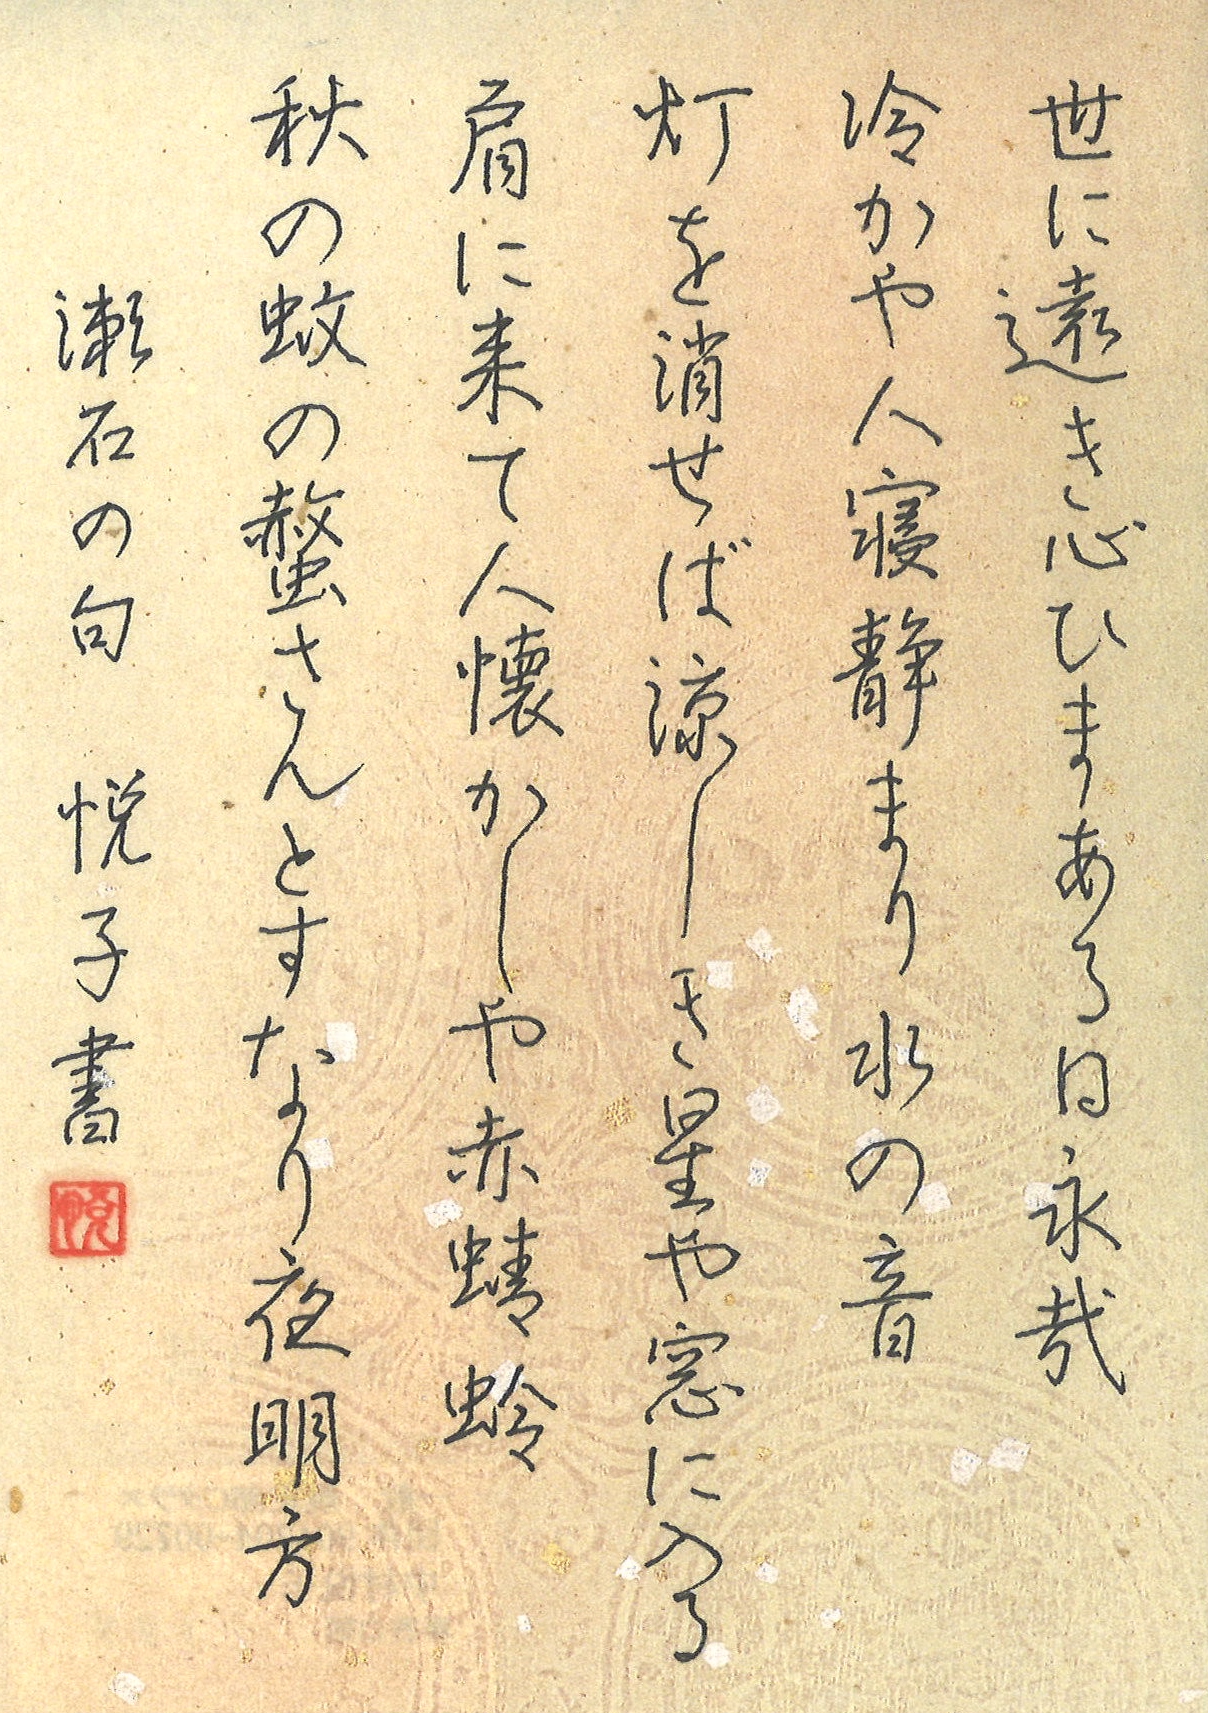 世に遠き心ひまある日永哉
冷かや人寝静まり水の音
灯を消せば涼しき星や窓に入る
肩に来て人懐かしや赤蜻蛉
秋の蚊の螫さんとすなり夜明方
漱石の句 悦子書
悦